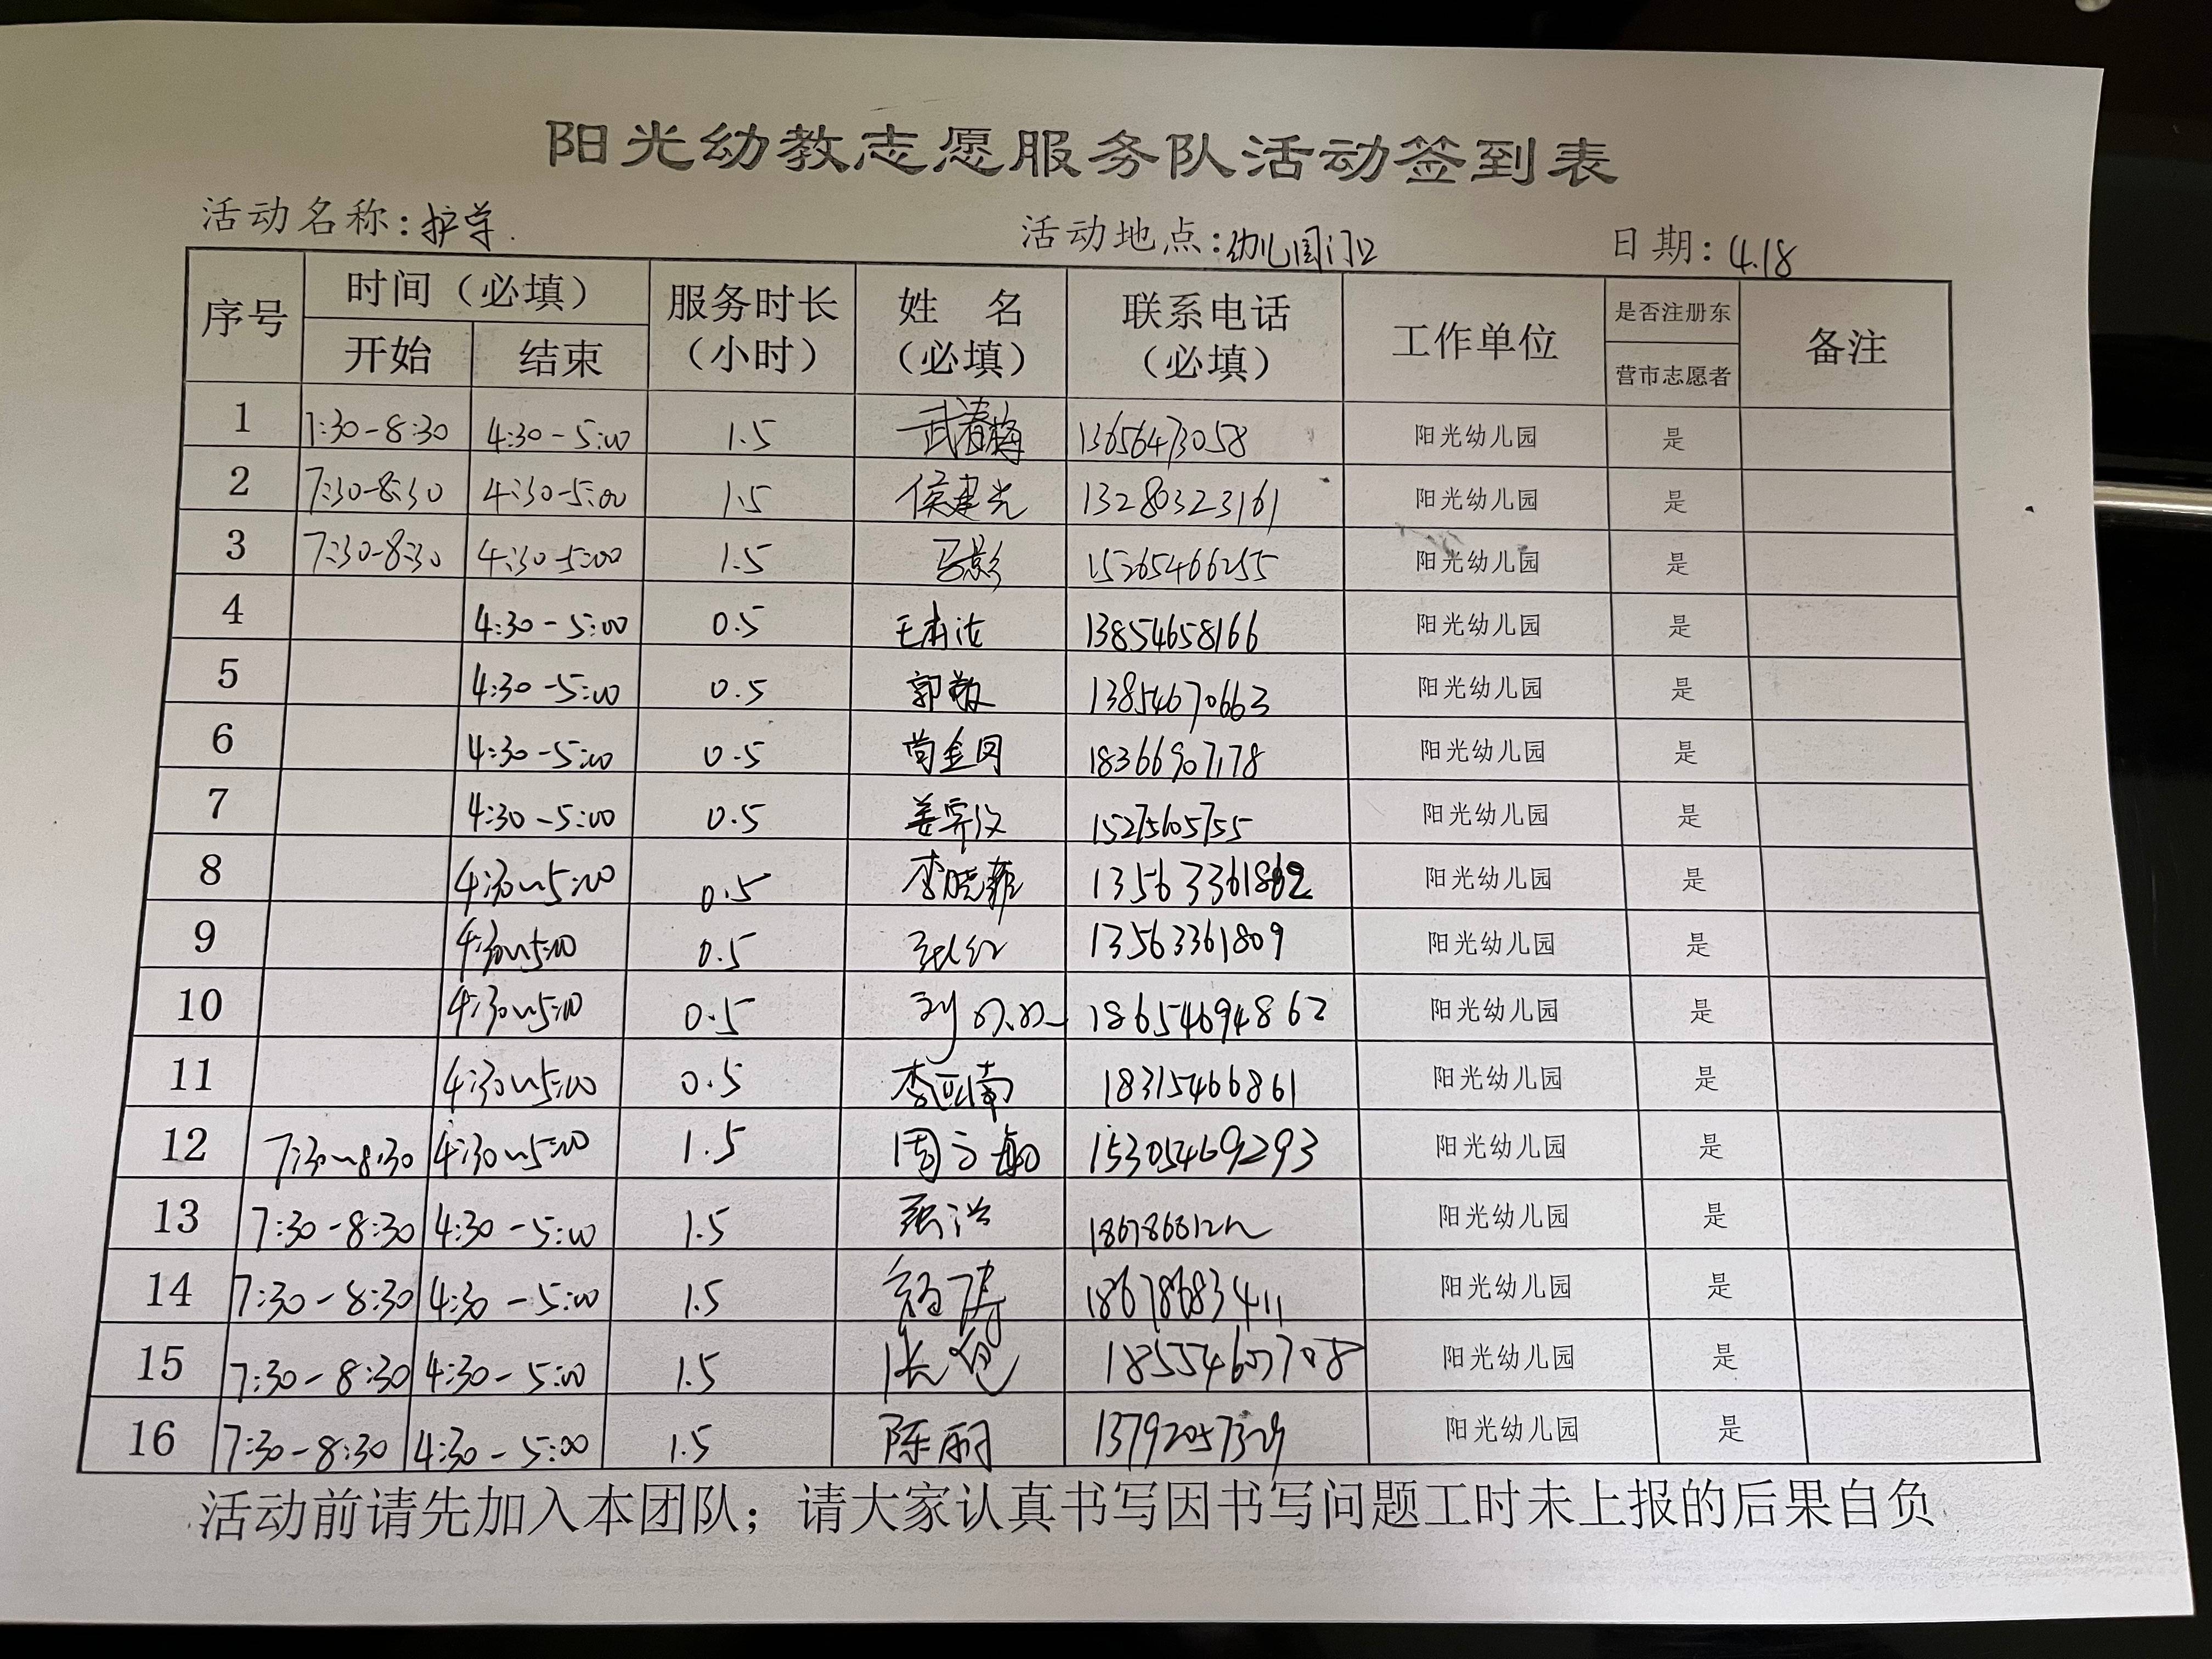 阳光幼教志愿服务队活动签到表
活动名称:护学. 活动地点:幼儿园门口 日期:4.18
序号 时间（必填） 服务时长（小时） 姓 名（必填） 联系电话（必填） 工作单位 是否注册东营市志愿者 备注
开始 结束
1 7:30-8:30 4:30-5:00 1.5 武春梅 13656473058 阳光幼儿园 是
2 7:30-8:30 4:30-5:00 1.5 侯建光 13280323161 阳光幼儿园 是
3 7:30-8:30 4:30-5:00 1.5 马影 15265466255 阳光幼儿园 是
4 4:30-5:00 0.5 13854658166 阳光幼儿园 是
5 4:30-5:00 0.5 郭敏 13854670663 阳光幼儿园 是
6 4:30-5:00 0.5 18366907178 阳光幼儿园 是
7 4:30-5:00 0.5 15275605755 阳光幼儿园 是
8 4:30~5:00 0.5 李晓菲 13563361862 阳光幼儿园 是
9 4:30~5:00 0.5 张红 13563361809 阳光幼儿园 是
10 4:30~5:00 0.5 18654694862 阳光幼儿园 是
11 4:30~5:00 0.5 李亚南 18315466861 阳光幼儿园 是
12 7:30~8:30 4:30~5:00 1.5 15305469293 阳光幼儿园 是
13 7:30-8:30 4:30-5:00 1.5 阳光幼儿园 是
14 7:30-8:30 4:30-5:00 1.5 18678683411 阳光幼儿园 是
15 7:30-8:30 4:30-5:00 1.5 18554607708 阳光幼儿园 是
16 7:30-8:30 4:30-5:00 1.5 陈丽 13792057329 阳光幼儿园 是
活动前请先加入本团队；请大家认真书写因书写问题工时未上报的后果自负